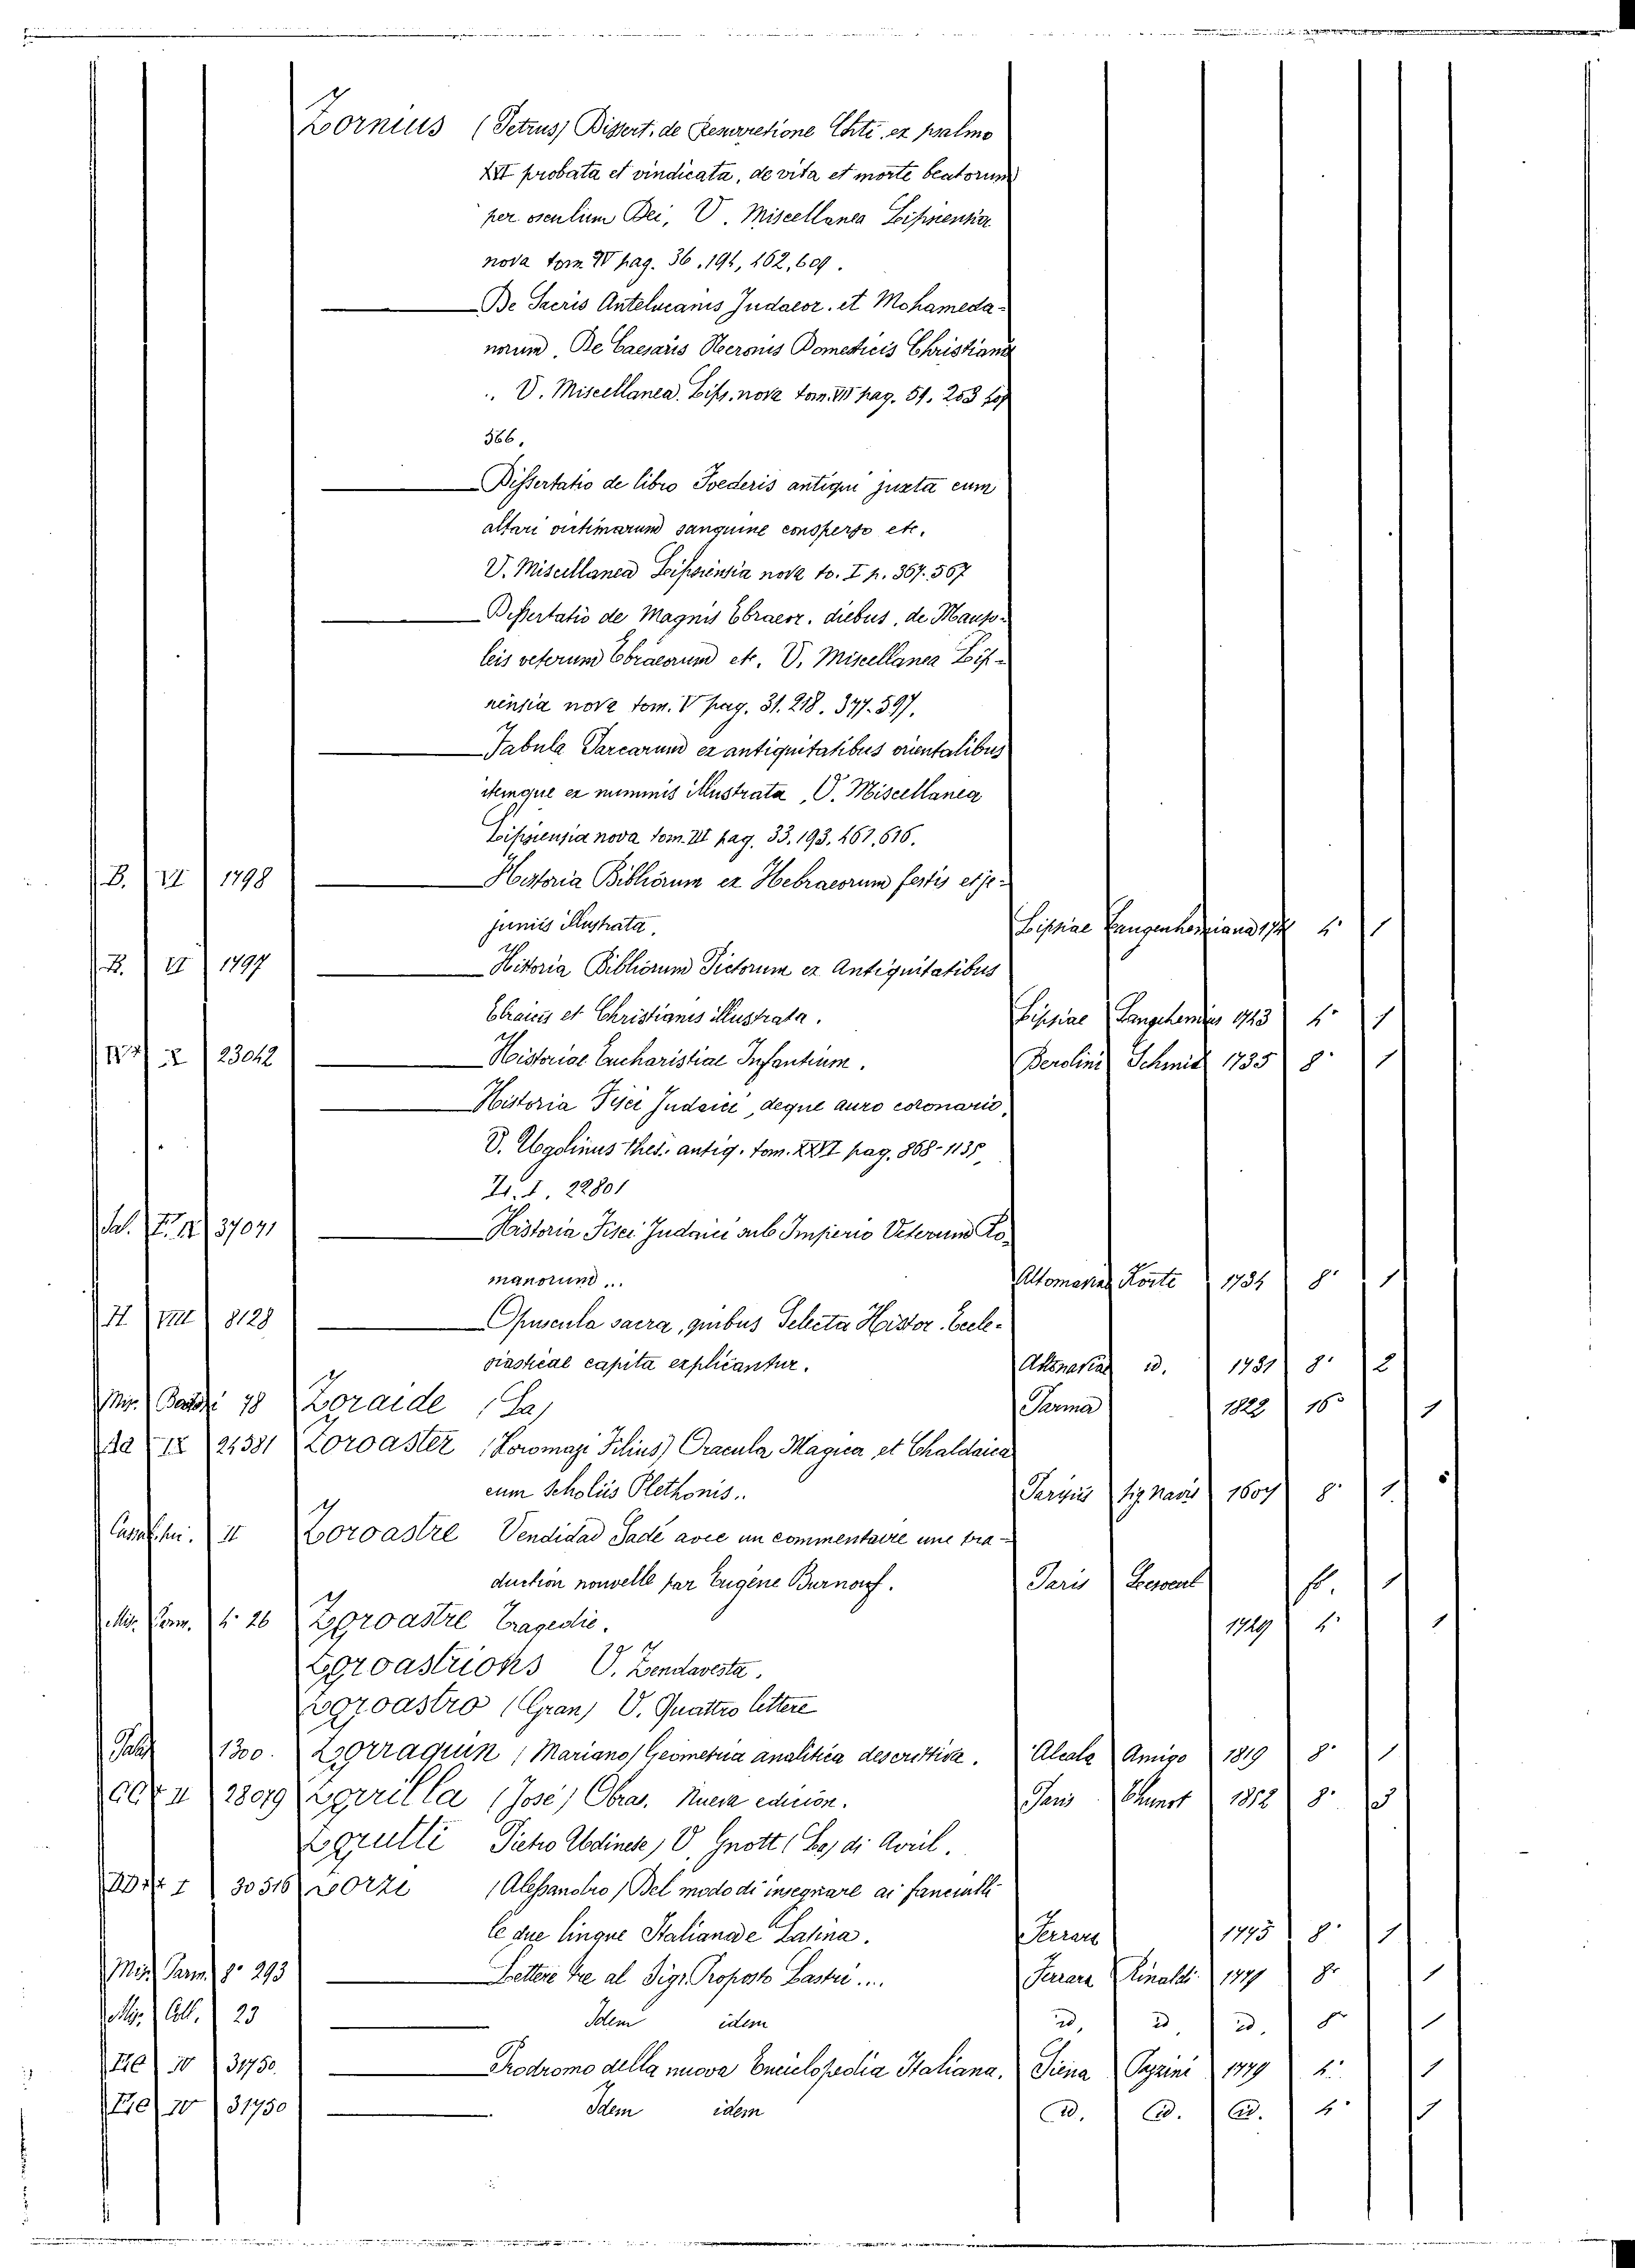 Zornius (Petrus) Dissert. de Resurretione Chti. ex psalmo
XVI probata et vindicata, de vita et morte beatorum
per osculum Dei, V. Miscellanea Lipsiensia
nova tom IV pag. 36. 194, 462, 609.
De Sacris Antelucanis Judaeor. et Mohameda-
norum, De Caesaris Neronis Domesticis Christianis
.. V. Miscellanea. Lips. nova tom. VII pag. 51. 253
566.
Dissertatio de libro Foederis antiqui juxta cum
altari victimarum sanguine consperso etc.
V. Miscellanea Lipsiensia nova to. I p. 367. 567
Dissertatio de Magnis Ebraeor. diebus, de Mauso-
leis veterum Ebraeorum etc. V. Miscellanea Lip-
siensia nova tom. V pag. 31. 218. 377. 597.
Fabula Parcarum ex antiquitatibus orientalibus
itemque ex nummis illustrata, V. Miscellanea
Lipsiensia nova tom. III pag. 33. 193. 461. 616.
B. VI 1798 Historia Bibliorum ex Hebraeorum festis et je-
juniis illustrata. Lipsiae 4. 1
B. VI 1797 Historia Bibliorum Pictorum ex Antiquitatibus
Ebraicis et Christianis illustrata. Lipsiae 1743 4. 1
X 23042 Historiae Eucharistiae Infantium. Berolini Schmid 1735 8. 1
Historia Fisci Judaici, deque auro coronario,
V. Ugolinus thes. antiq. tom. XXVI pag. 868-1135
22801
Sal. 37071 Historia Fisci Judaici sub Imperio Veterum Ro-
manorum... Altonaviae Korte 1734 8. 1
H VIII 8128 Opuscula sacra, quibus Selecta Histor. Eccle-
siasticae capita explicantur. Altonaviae id. 1731 8. 2
Mis. 78 Zoraide (La) Parma 1822 16° 1
IX 24381 Zoroaster (Horomazi Filius) Oracula Magica et Chaldaica
cum Scholiis Plethonis.. Parisiis sig. navis 1607 8. 1
II Zoroastre Vendidad Sadé avec un commentaire une tra-
duction nouvelle par Eugène Burnouf. Paris fo. 1
Mis. Parm. 4. 26 Zoroastre Tragedie. 1749 4. 1
Zoroastrions V. Zendavesta.
Zoroastro (Gran) V. Quattro lettere
Palat 1300. Zorraquin (Mariano) Geometria analitica descrittiva. Alcala Amigo 1819 8. 1
II 28079 Zorrilla (José) Obras. Nueva edicion. Paris 1852 8. 3
Zorutti Pietro Udinese, V. Gnott (La) di Avril.
I 30516 Zorzi (Alessandro) Del modo di insegnare ai fanciulli
le due lingue Italiana e Latina. Ferrara 1775 8. 1
Mis. Parm. 8° 293 Lettere tre al Sigr. Proposto Lastri.... Ferrara Rinaldi 1779 8. 1
Mis. Coll. 23 Idem idem id. id. id. 8. 1
IV 31750. Prodromo della nuova Enciclopedia Italiana. Siena Pazzini 1779 4. 1
IV 31750 Idem idem id. id. id. 4. 1